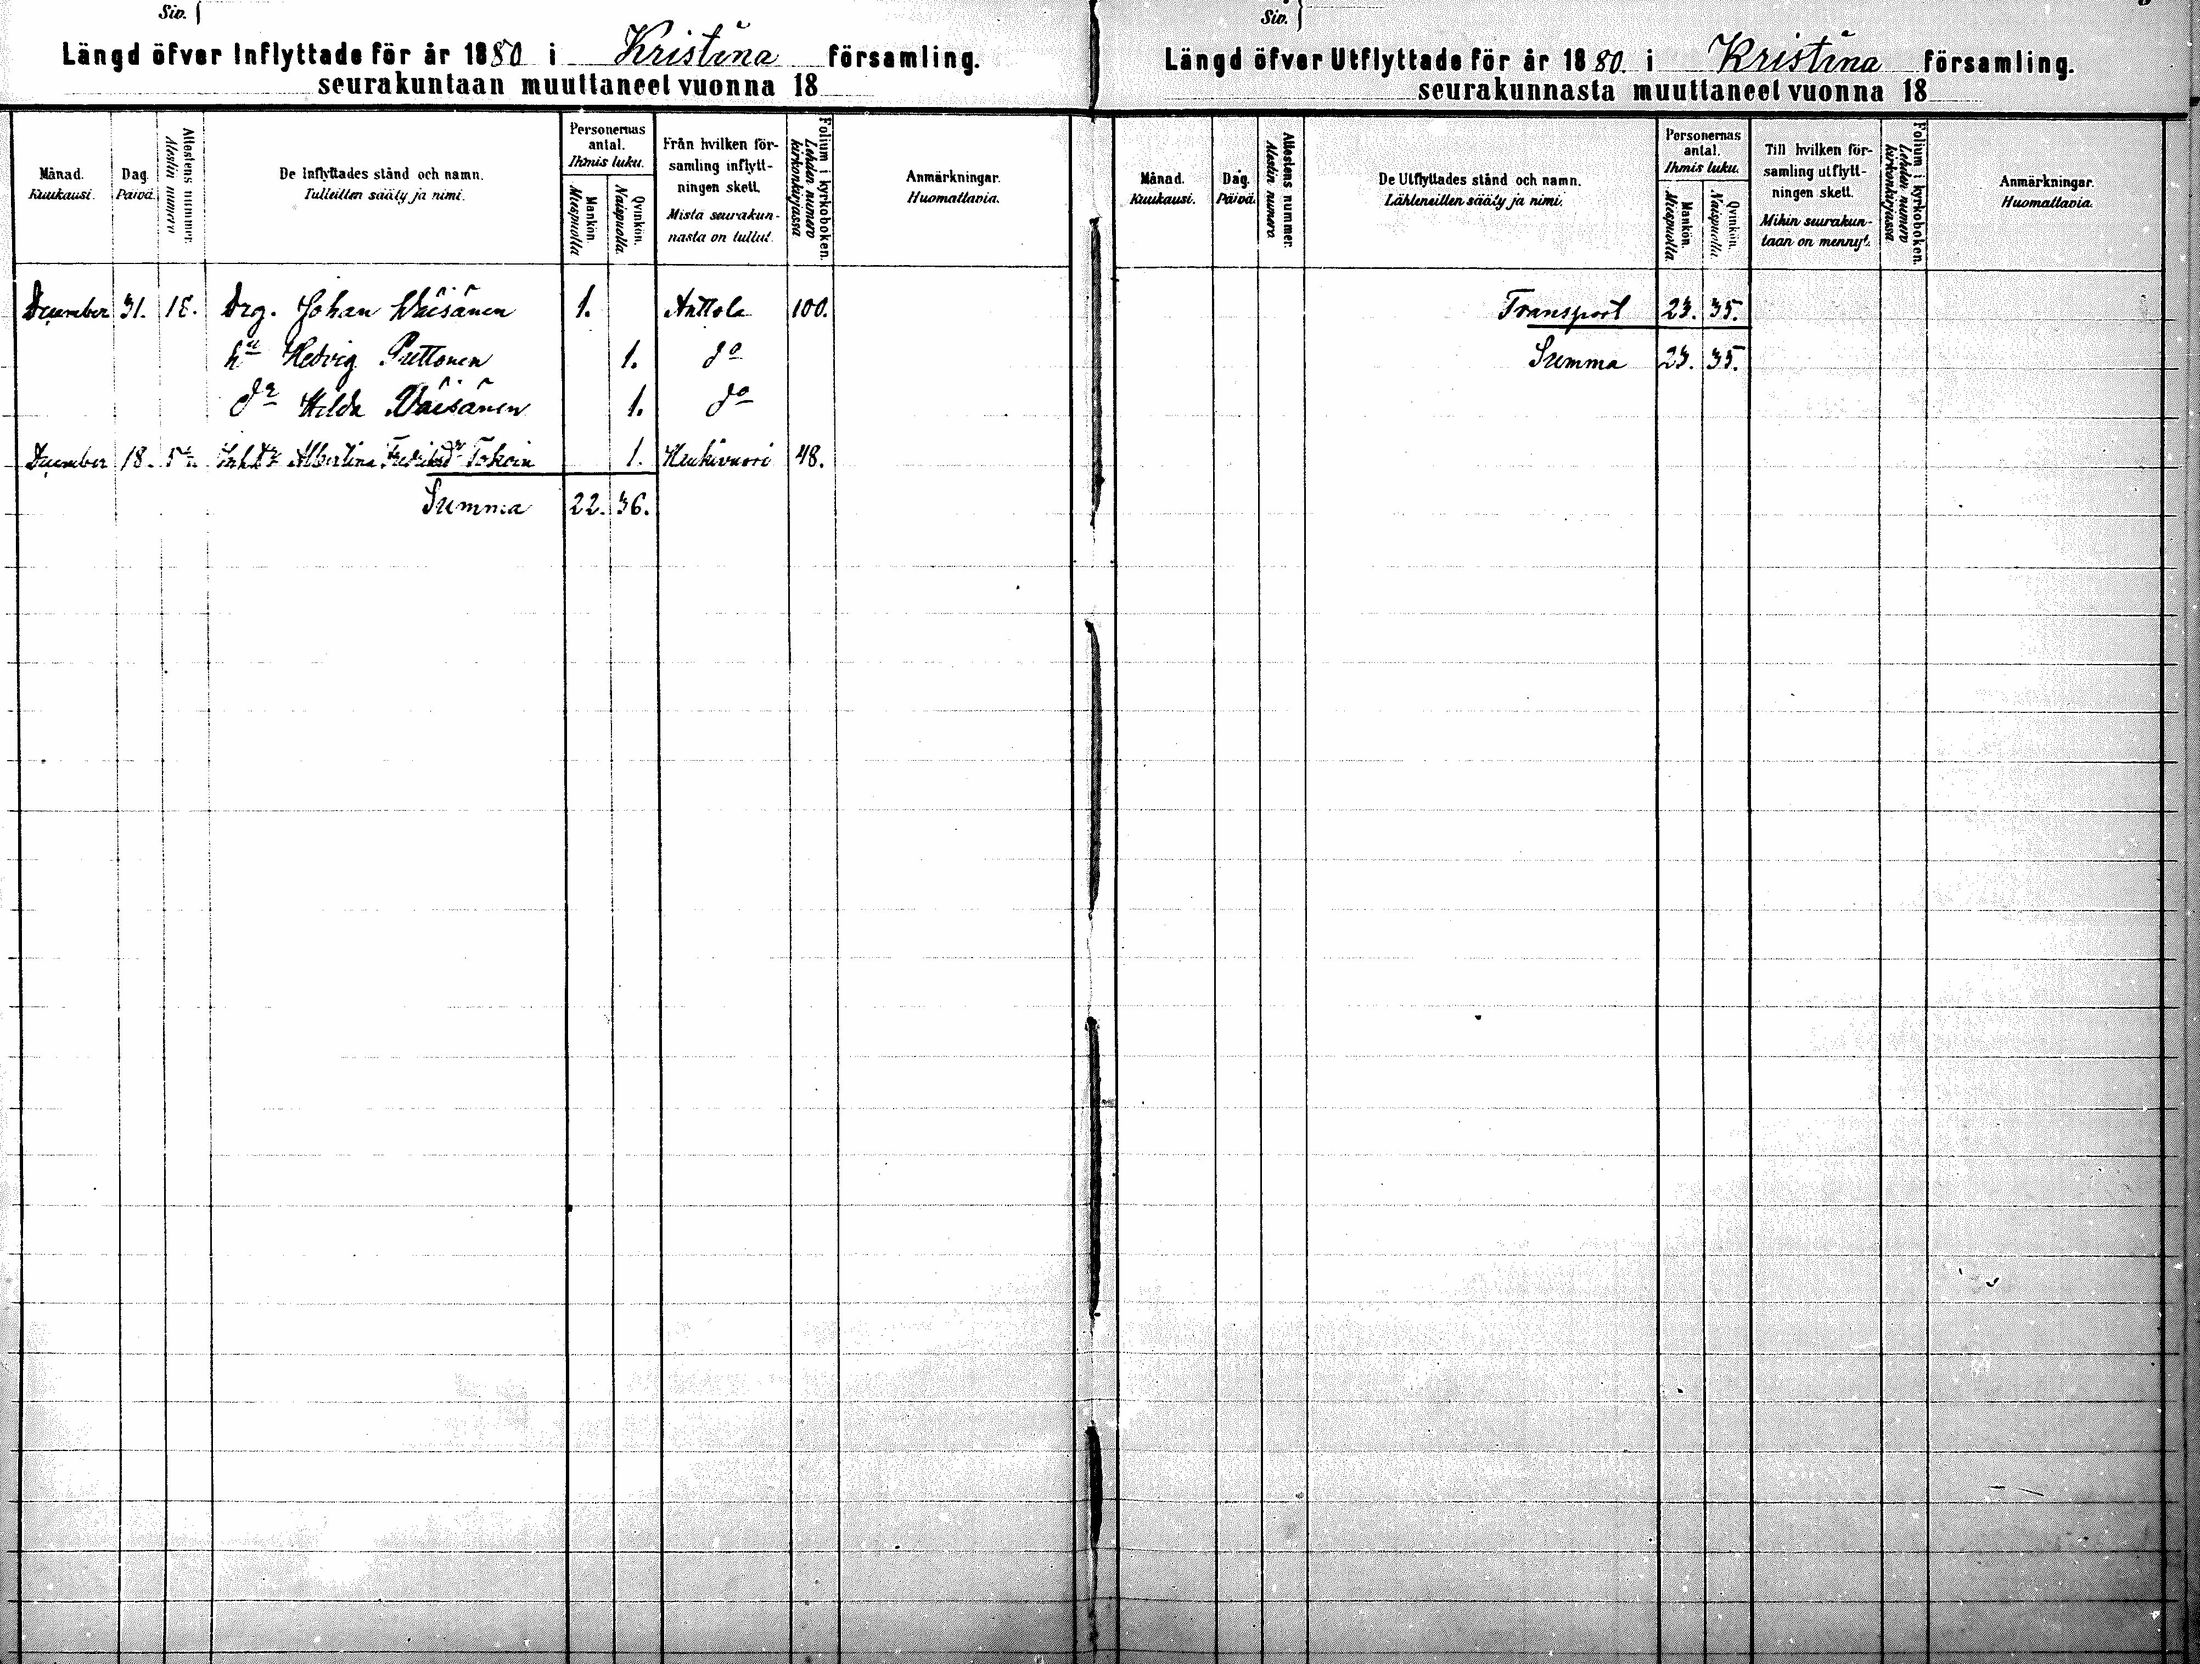 Siv.
Längd öfver Inflyttade för år 1880 i Kristina församling.
seurakuntaan muuttaneet vuonna 18
Månad. Kuukausi.
Dag. Päivä.
Attestens nummer. Atestin numero
De Inflyttades stånd och namn.
Tulleitten sääty ja nimi.
Personernas antal.
Ihmis luku.
Mankön. Miespuolia
Qvinkön. Naispuolia.
Från hvilken för-
samling inflytt-
ningen skett.
Mista seurakun-
nasta on tullut.
Folium i kyrkoboken.
Lehden numero kirkonkirjassa
Anmärkningar.
Huomattavia.
December 31. 18. Drg. Johan Wäisänen 1. Anttola 100.
hu Hedvig Puttonen 1. do
dr Hilda Wäisänen 1. do
December 18. Albertina 1. 48.
Summa 22. 36.
Siv.
Längd öfver Utflyttade för år 1880. i Kristina församling.
seurakunnasta muuttaneet vuonna 18
Månad. Kuukausi.
Dag. Päivä.
Attestens nummer. Atestin numero
De Utflyttades stånd och namn.
Lähteneitten sääty ja nimi.
Personernas antal.
Ihmis luku.
Mankön. Miespuolia.
Qvinkön. Naispuolia
Till hvilken för-
samling utflytt-
ningen skett.
Mihin seurakun-
taan on mennyt.
Folium i kyrkoboken.
Lehden numero kirkonkirjassa
Anmärkningar.
Huomattavia.
Transport 23. 35.
Summa 23. 35.